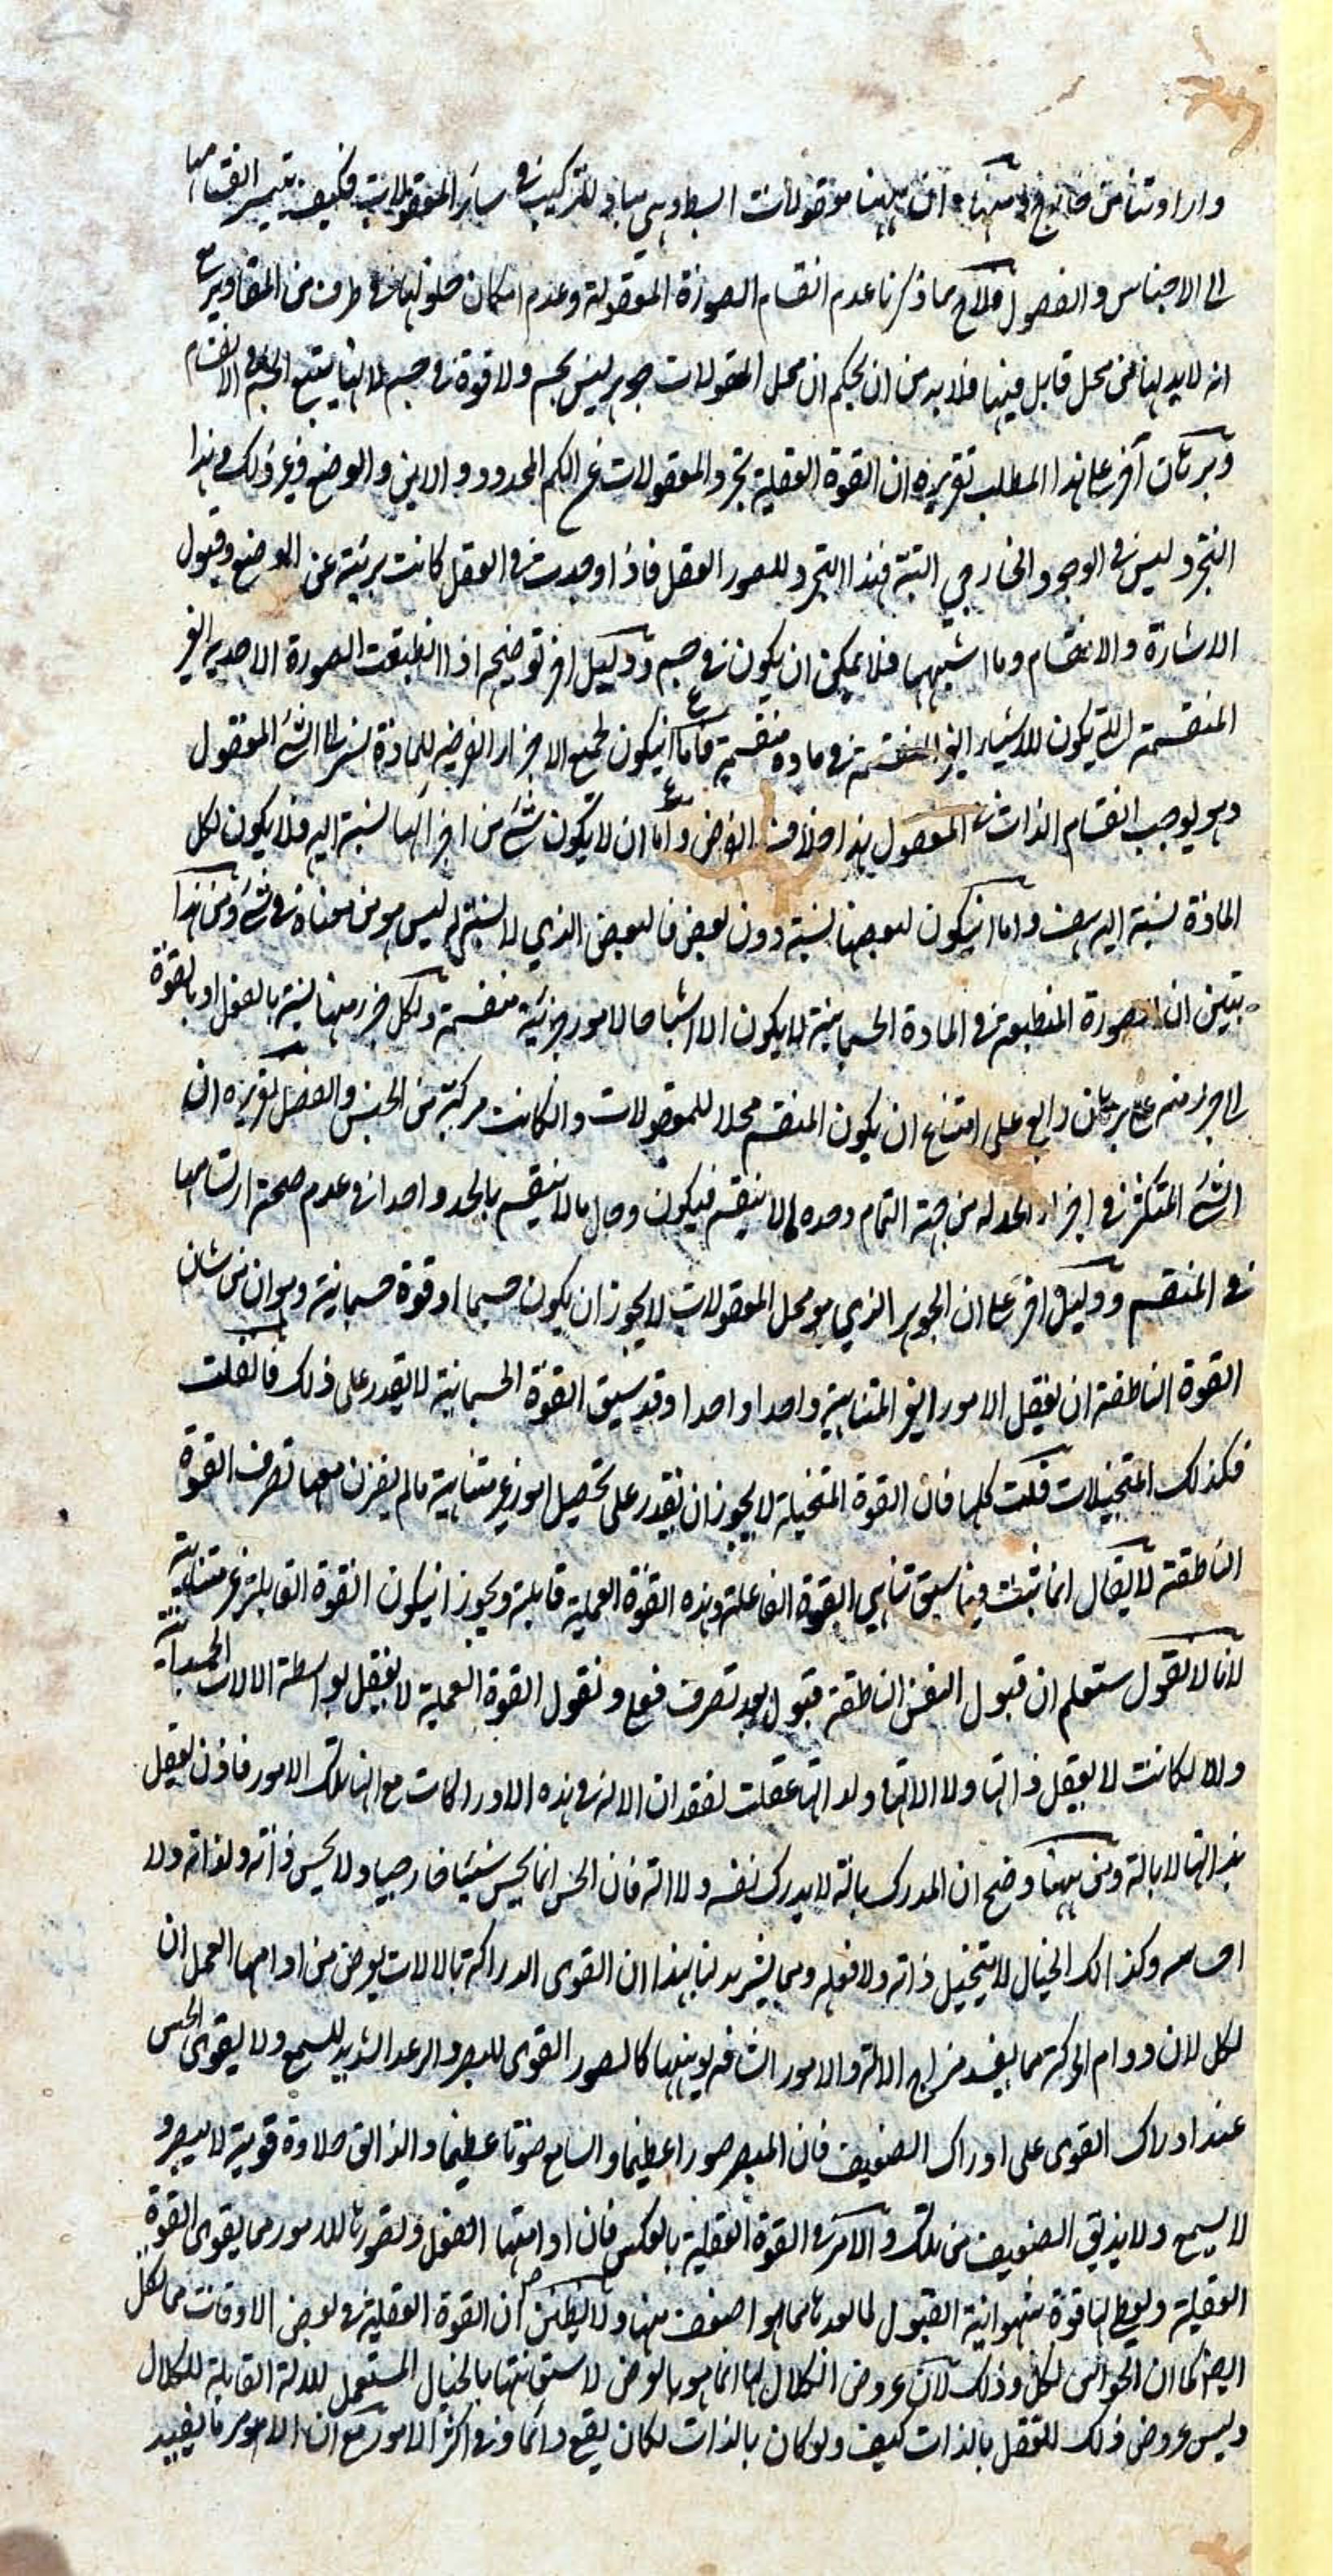 ان ههنا معقولات ابسط وهي مباد للتركيب في سائر المعقولات فكيف يتيسر انقسامها
الى الاجناس والفصول فلاح مما ذكرنا عدم انقسام الصورة المعقولة وعدم امكان حلولها في طرف من المقادير مع
انه لابد لها من محل قابل فينا فلا بد من ان يحكم ان محل المعقولات جوهر ليس بجسم ولا قوة في جسم لانها يتبع الجسم في الانقسام
وبرهان آخر على هذا المطلب تقريره ان القوة العقلية تجرد المعقولات عن الكم المحدود والاين والوضع وغير ذلك وهذا
التجرد ليس في الوجود الخارجي البتة فهذا التجرد للصور العقل فاذا وجدت في العقل كانت بريئة عن الوضع وقبول
الاشارة والانقسام وما اشبهها فلا يمكن ان يكون في جسم ودليل اخر توضيحه اذا انطبعت الصورة الاحدية الغير
المنقسمة التي يكون للاشياء الغير المنقسمة في مادة منقسمة فاما ان يكون لجميع الاجزاء الفرضية للمادة نسبة الى الشئ المعقول
وهو يوجب انقسام الذات المعقول هذا خلاف الفرض واما ان لا يكون شئ من اجزائها نسبة اليه فلا يكون لكل
المادة نسبة اليه هف واما ان يكون لبعضها نسبة دون بعض فالبعض الذي لا نسبة له ليس هو من معناه في شئ ومن هذا
يتبين ان الصورة المنطبعة في المادة الجسمانية لا يكون الا اشباحا لامور جزئية منقسمة ولكل جزء منها نسبة بالفعل او بالقوة
الى جزء منه برهان رابع على امتناع ان يكون المنقسم محلا للمعقولات وان كانت مركبة من الجنس والفصل تقريره ان
الشئ المتكثر في اجزاء الحد له من جهة التمام وحدة لا ينقسم فيكون وحال ما لا ينقسم بالحد واحدا في عدم صحة ارتسامها
في المنقسم ودليل اخر على ان الجوهر الذي هو محل المعقولات لا يجوز ان يكون جسما او قوة جسمانية وهو ان من شان
القوة الناطقة ان يعقل الامور الغير المتناهية واحدا واحدا وقد سبق القوة الجسمانية لا يقدر على ذلك فان قلت
فكذلك المتخيلات قلت كلها فان القوة المتخيلة لا يجوز ان يقدر على تحصيل امور غير متناهية ما لم يقرن معها تصرف القوة
الناطقة لا يقال انما ثبت فيما سبق تناهي القوة الفاعلة وهذه القوة العملية قابلة ويجوز ان يكون القوة القابلة غير متناهية
لانا لا نقول ستعلم ان قبول النفس الناطقة قبول بعد تصرف فعلي ونقول القوة العملية لا يعقل بواسطة الالات الجسدانية
والا لكانت لا يعقل ذاتها ولا الاتها ولا انها عقلت لفقدان الالة في هذه الادراكات مع انها تلك الامور فاذن يعقل
بذاتها لا بالة ومن ههنا وضح ان المدرك بالة لا يدرك نفسه ولا الته فان الحس انما يحس شيئا خارجيا ولا يحس ذاته ولذاته ولا
احساسه وكذلك الخيال لا يتخيل ذاته ولا فعله ومما يشهد لنا بهذا ان القوى الدراكة بالالات يعرض من ادامها العمل ان
لكل لان دوام الحركة مما يفسد مزاج الالة والامور الشاقة يوهنها كالصور القوى للبصر والرعد الشديد للسمع ولا يقوى الحس
عند ادراك القوى على ادراك الضعيف فان المبصر صورا عظيما والسامع صوتا عظيما والذائق حلاوة قوية لا يبصر و
لا يسمع ولا يذيق الضعيف من تلك والامر في القوة العقلية بالعكس فان ادامتها الفعل وتصورها للامور مما يقوى القوة
العقلية ويعطي لها قوة القبول لما بعدها مما هو اضعف منها ولا يظنن ان القوة العقلية في بعض الاوقات مما لكل
ايضا كما ان الحواس لكل وذلك لان عروض الكلال لها انما هو بالعرض لاستعانتها بالخيال المستعمل للالة القابلة للكلال
وليس عروض ذلك للتعقل بالذات كيف ولو كان بالذات لكان يقع دائما وفي اكثر الامور مع ان الامور ما يفيد